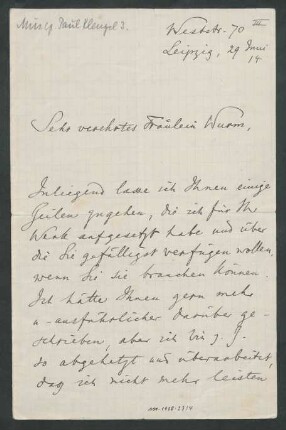 Paul Klengel 3.
Weststr. 70
Leipzig, 29 Juni
14
Sehr verehrtes Fräulein Wurm,
Inliegend lasse ich Ihnen einige
Zeilen zugehen, die ich für Ihr
Werk aufgesetzt habe und über
die Sie gefälligst verfügen wollen,
wenn Sie sie brauchen können.
Ich hätte Ihnen gern mehr
u. ausführlicher darüber ge-
schrieben, aber ich bin z. Z.
so abgehetzt und überarbeitet,
daß ich nicht mehr leisten